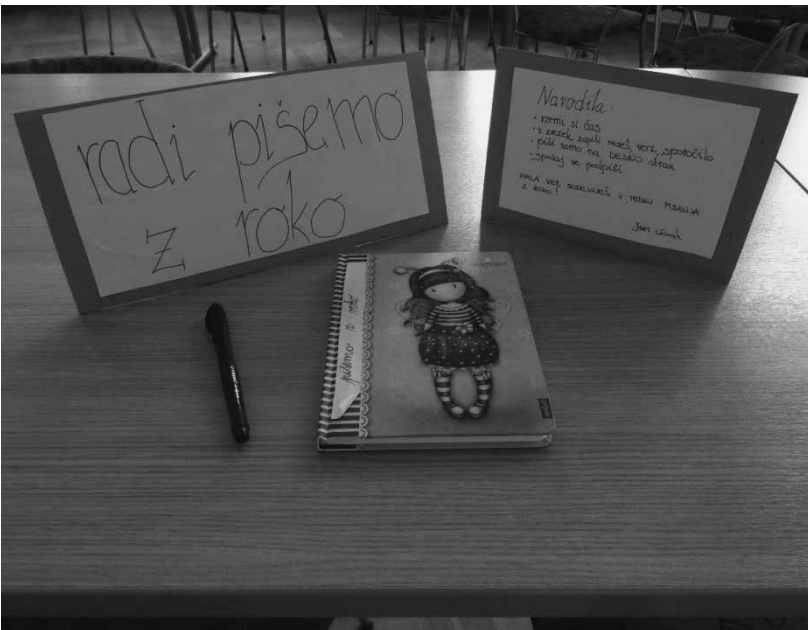 radi pišemo
z roko
Navodila:
• vzemi si čas
• v zvezek zapiši misel, verz, sporočilo
• piši samo na DESNO stran
• spodaj se podpiši
HVALA KER SODELUJEŠ V TEDNU PISANJA
Z ROKO!
pišemo z roko